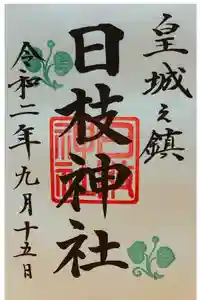 皇城之鎮
日枝神社
令和二年九月十五日